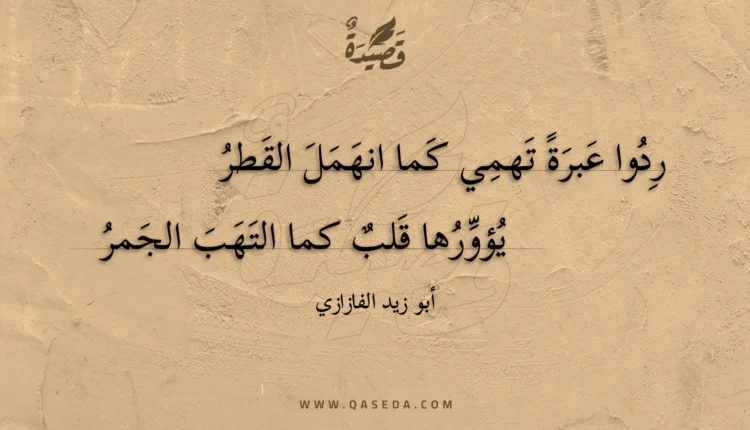 قَصِيدَةٌ
رِدُوا عَبرَةً تَهمِي كَما انهَمَلَ القَطرُ
يُؤوِّرُها قَلبٌ كما التَهَبَ الجَمرُ
أبو زيد الفازازي
WWW.QASEDA.COM